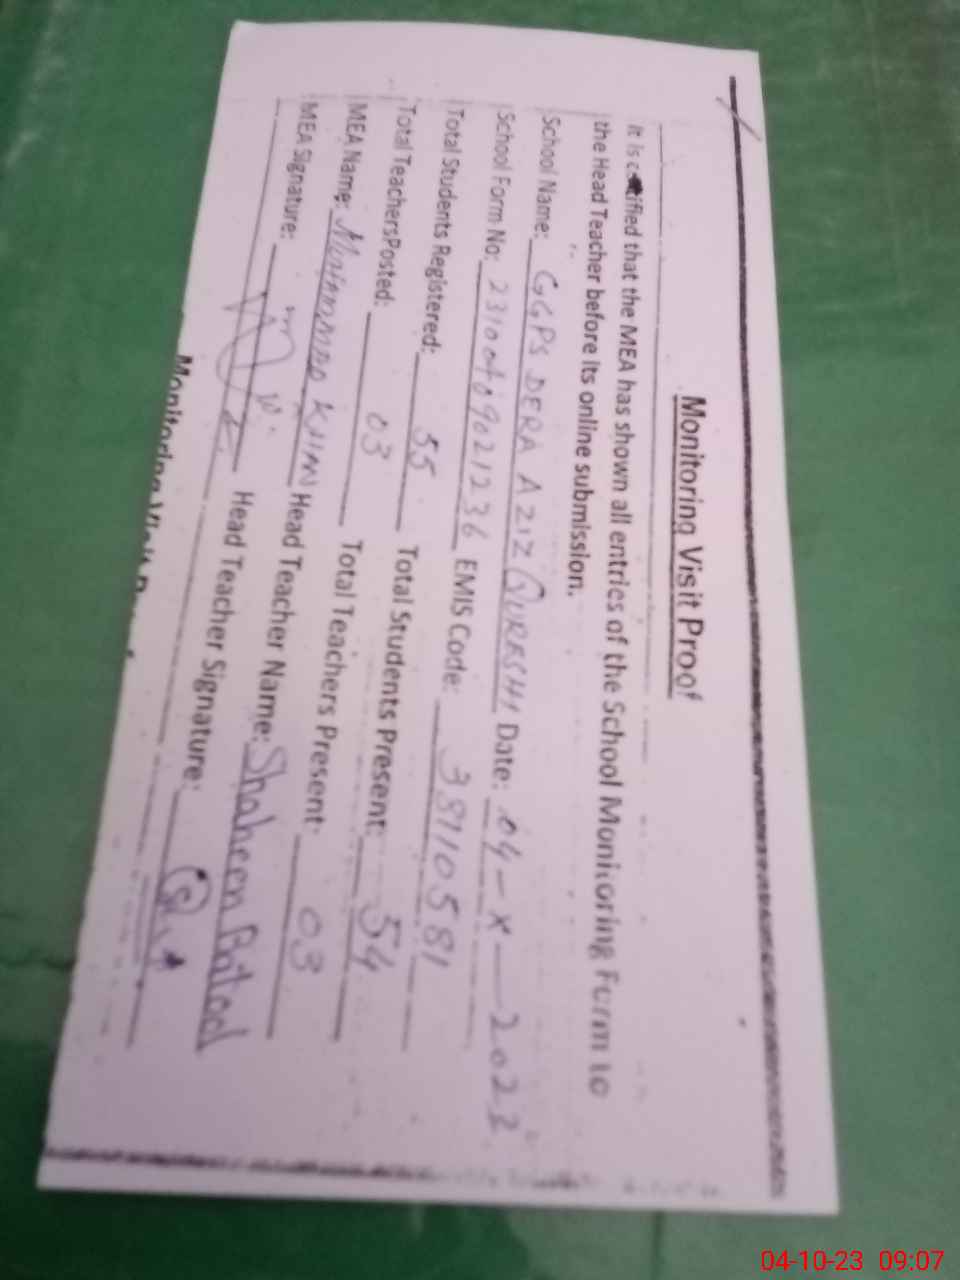 Monitoring Visit Proof
It is certified that the MEA has shown all entries of the School Monitoring Form to
the Head Teacher before its online submission.
School Name: GGPS DERA AZIZ QURESHI Date: 04-X-2023
School Form No: EMIS Code: 38110581
Total Students Registered: 55 Total Students Present: 54
Total TeachersPosted: 03 Total Teachers Present: 03
MEA Name: MUHAMMAD KHAN Head Teacher Name: Shaheen Batool
MEA Signature: Head Teacher Signature:
Monitoring Visit Proof
04-10-23 09:07